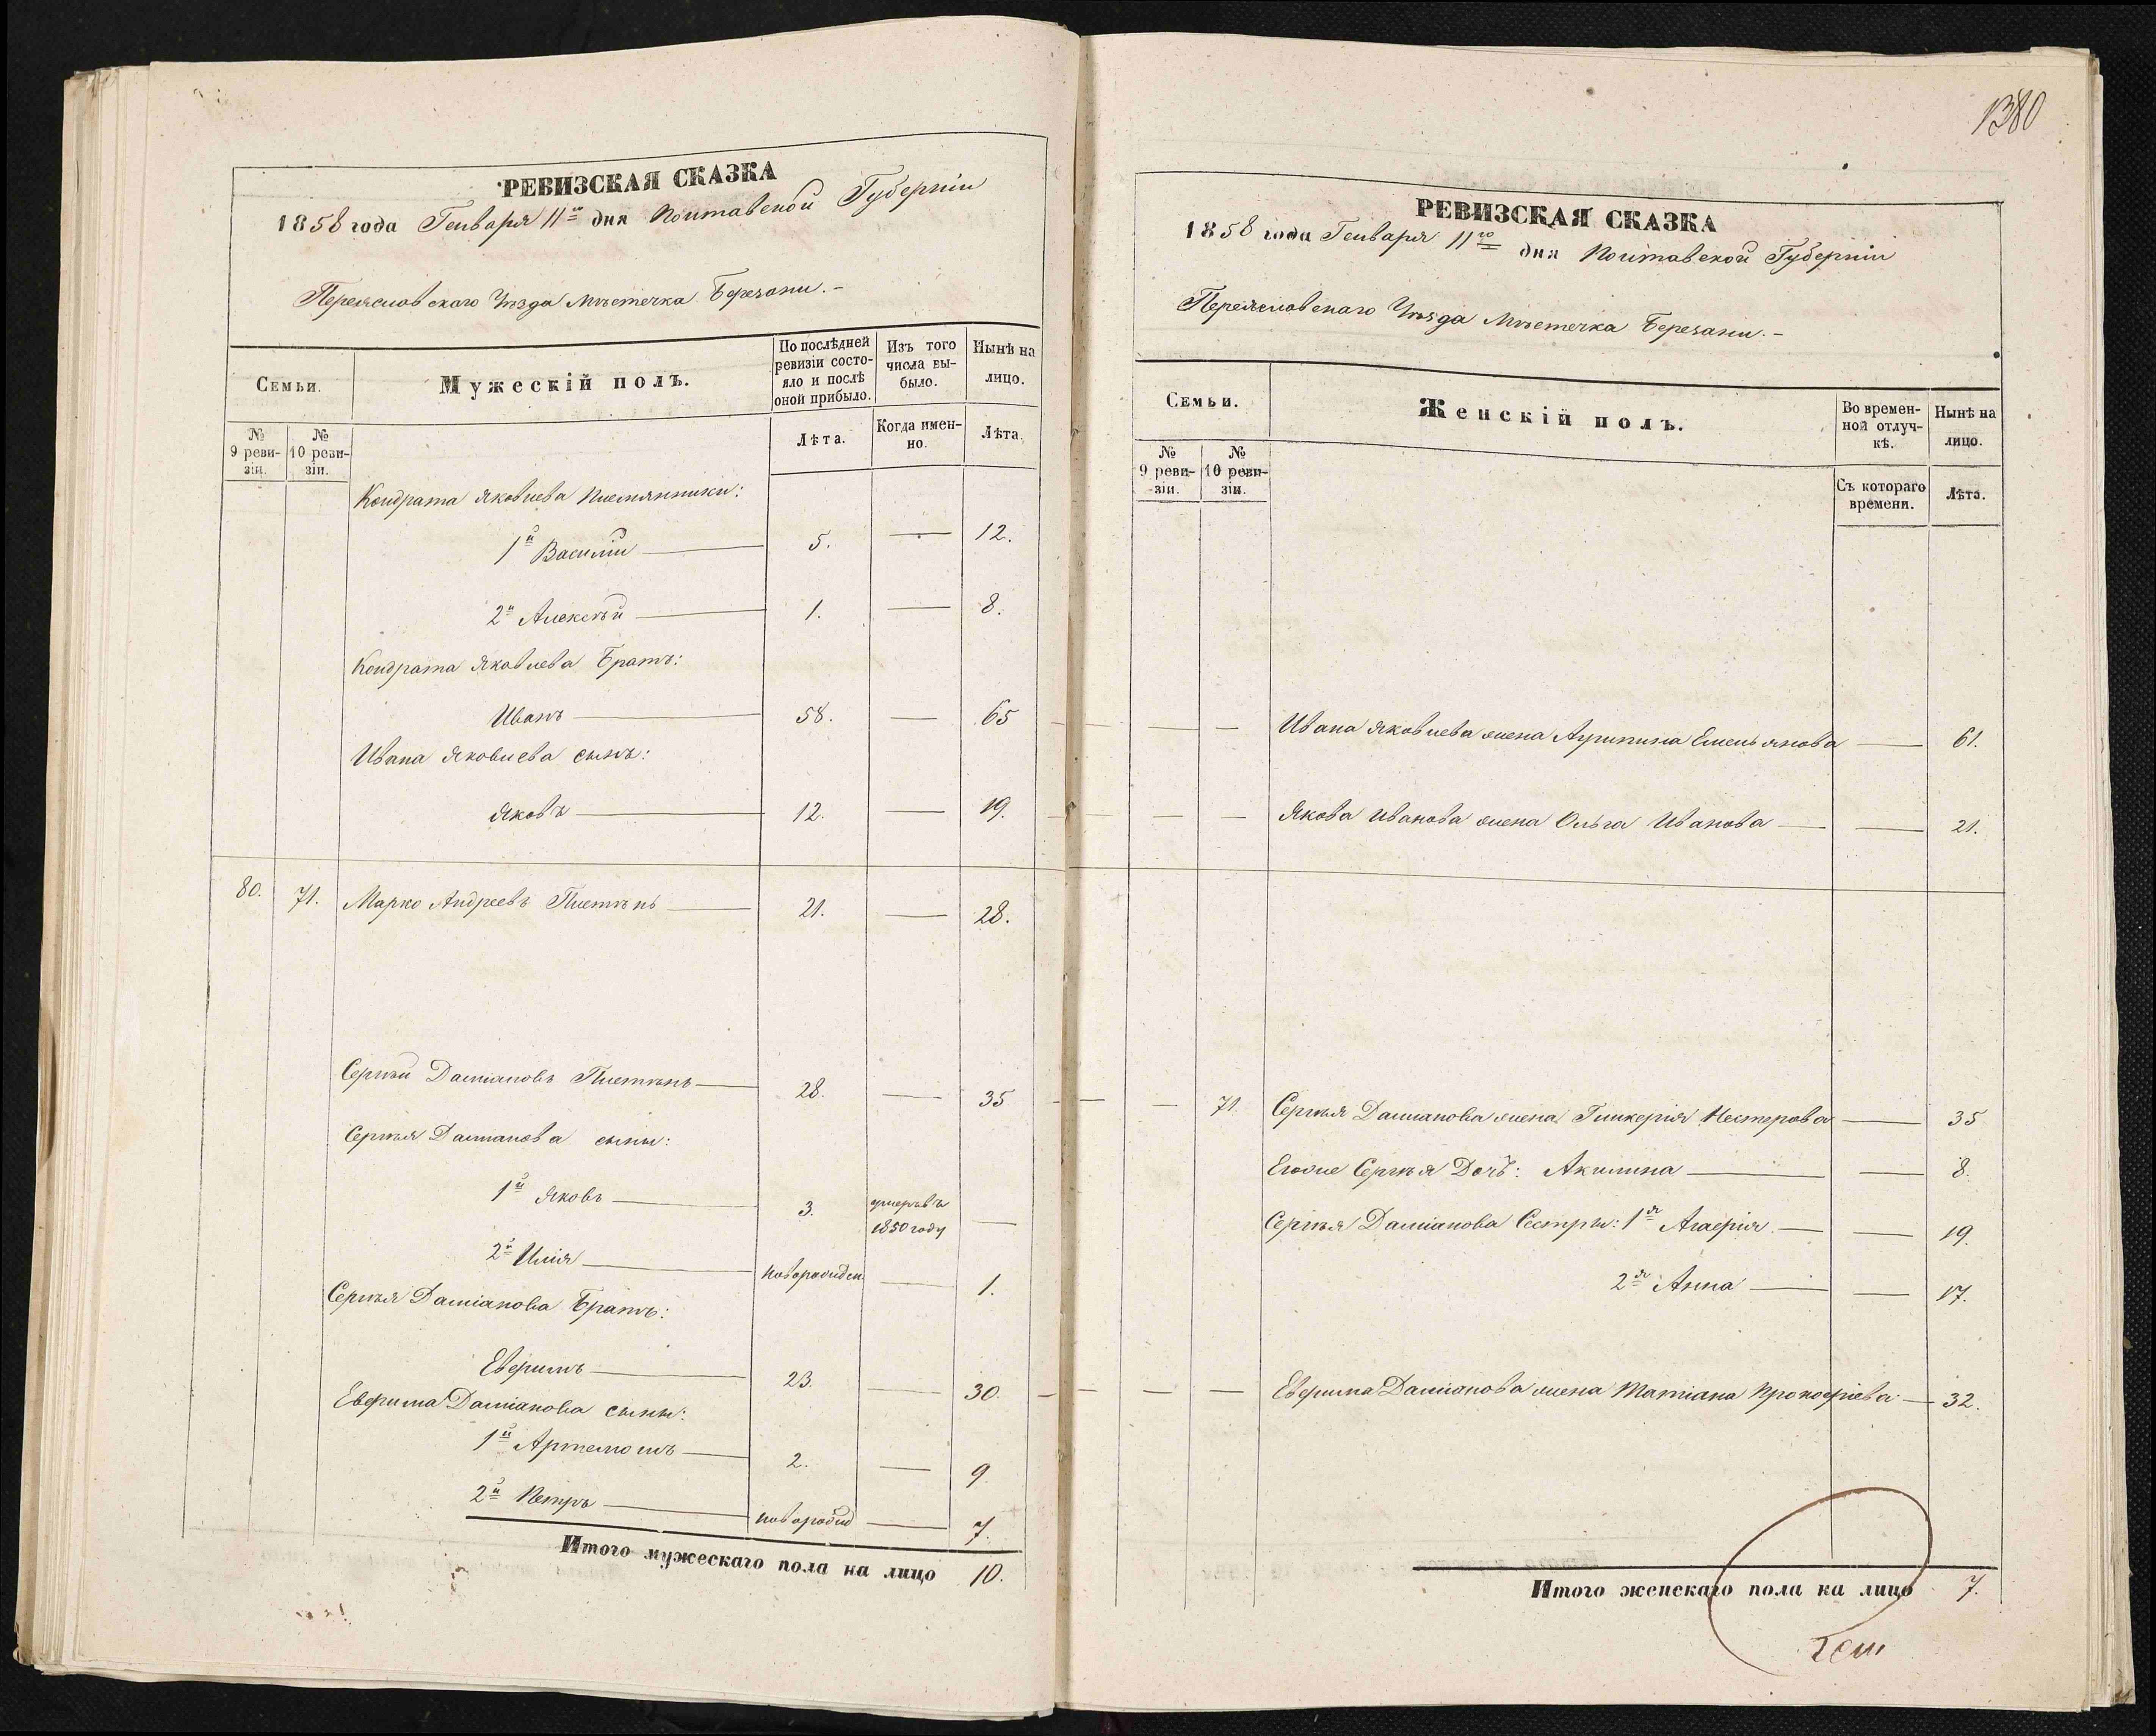 РЕВИЗСКАЯ СКАЗКА
1858 года Генваря 11го дня Полтавской Губерніи
Переяславскаго Уѣзда Мѣстечка Березани.-
Семьи.
Мужескій полъ.
По послѣдней ревизіи состояло и послѣ оной прибыло.
Изъ того числа выбыло.
Нынѣ на лицо.
№ 9 ревизіи.
№ 10 ревизіи.
Лѣта.
Когда именно.
Лѣта.
Кондрата Яковлева племянники:
1й Василій — 5. — 12.
2й Алексѣй — 1. — 8.
Кондрата Яковлева Братъ:
Иванъ — 58. — 65
Ивана Яковлева сынъ:
Яковъ — 12. — 19.
80. 71. Марко Андреевъ — 21. — 28.
Сергѣй Даміановъ — 28. — 35
Сергѣя Даміанова сыны:
1й Яковъ — 3. умеръ въ 1850 году —
2й Илія — новорожден — 1.
Сергѣя Даміанова Братъ:
Евфимъ — 23. — 30.
Евфима Даміанова сыны:
1й Артемонъ — 2. — 9
2й Петръ — новорожд — 7.
Итого мужескаго пола на лицо 10.
1380
РЕВИЗСКАЯ СКАЗКА
1858 года Генваря 11го дня Полтавской Губерніи
Переяславскаго Уѣзда Мѣстечка Березани.-
Семьи.
Женскій полъ.
Во временной отлучкѣ.
Нынѣ на лицо.
№ 9 ревизіи.
№ 10 ревизіи.
Съ котораго времени.
Лѣта.
— — Ивана Яковлева жена Агрипина Емельянова — 61.
— — Якова Иванова жена Ольга Иванова — — 21.
— 71. Сергѣя Даміанова жена Гликерія Нестерова — 35
Егоже Сергѣя Дочь: Акилина — — 8.
Сергѣя Даміанова Сестры: 1я Агафія — — 19.
2я Анна — — 17.
— — Евфима Даміанова жена Татіана Прокофіева — 32.
Итого женскаго пола на лицо 7.